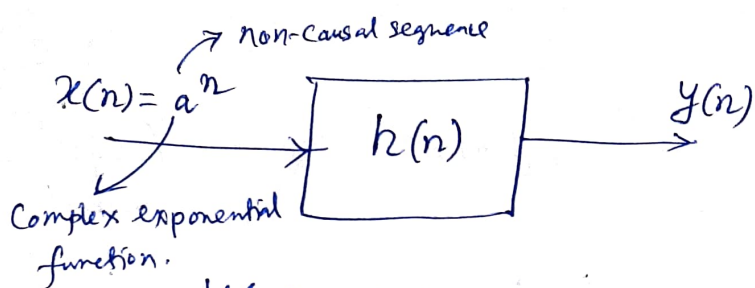 non-causal sequence
x(n) = aⁿ
h(n)
y(n)
Complex exponential
function.